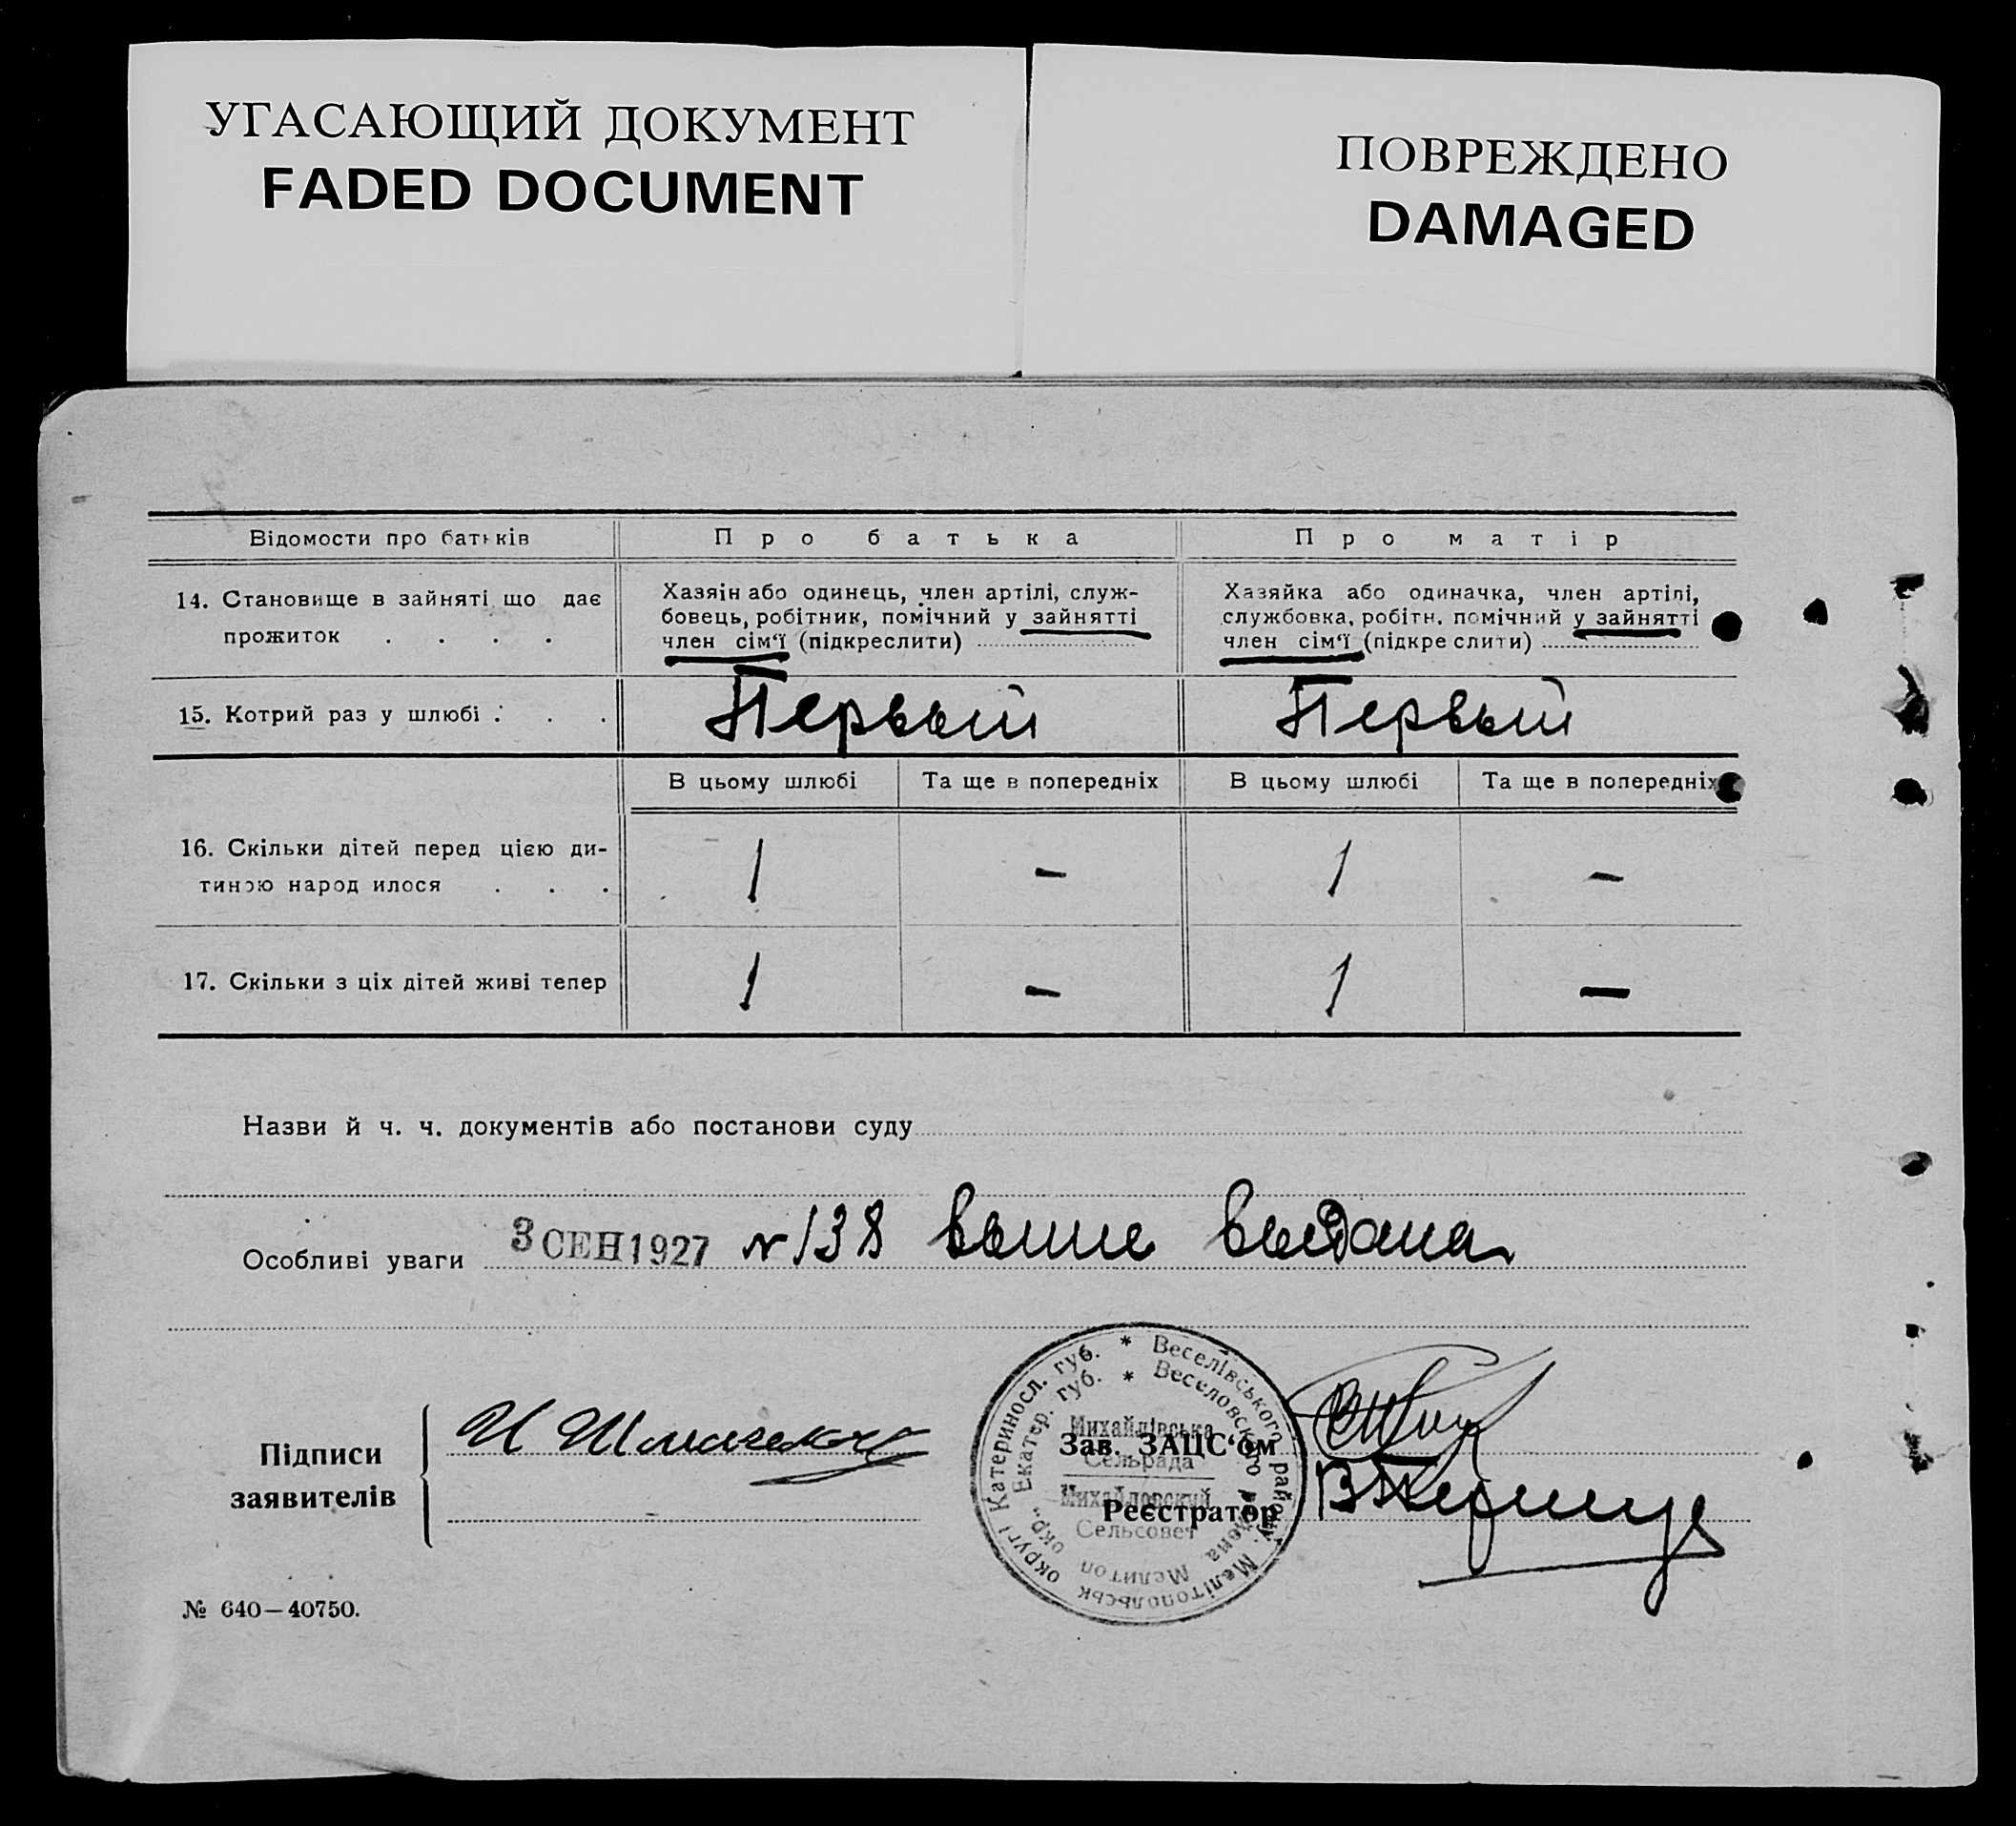 УГАСАЮЩИЙ ДОКУМЕНТ
FADED DOCUMENT
ПОВРЕЖДЕНО
DAMAGED
Відомости про батьків
Про батька
Про матір
14. Становище в зайняті що дає
прожиток . . . .
Хазяїн або одинець, член артілі, служ-
бовець, робітник, помічний у зайнятті
член сім'ї (підкреслити)
Хазяйка або одиначка, член артілі,
службовка, робітн. помічний у зайнятті
член сім'ї (підкреслити)
15. Котрий раз у шлюбі . . .
Первый
Первый
В цьому шлюбі
Та ще в попередніх
В цьому шлюбі
Та ще в попередніх
16. Скільки дітей перед цією ди-
тиною народилося . . .
1 - 1 -
17. Скільки з ціх дітей живі тепер
1 - 1 -
Назви й ч. ч. документів або постанови суду
Особливі уваги 3 СЕН 1927 № 138 выпис выдана
Підписи
заявителів
И
Зав. ЗАЦС'ом
Реєстратор
* Веселівського району. Мелітопольськ округі Катериносл. губ.
* Веселовского района Мелитоп окр. Екатер. губ.
Михайлівська
Сельрада
Михайловский
Сельсовет
№ 640—40750.